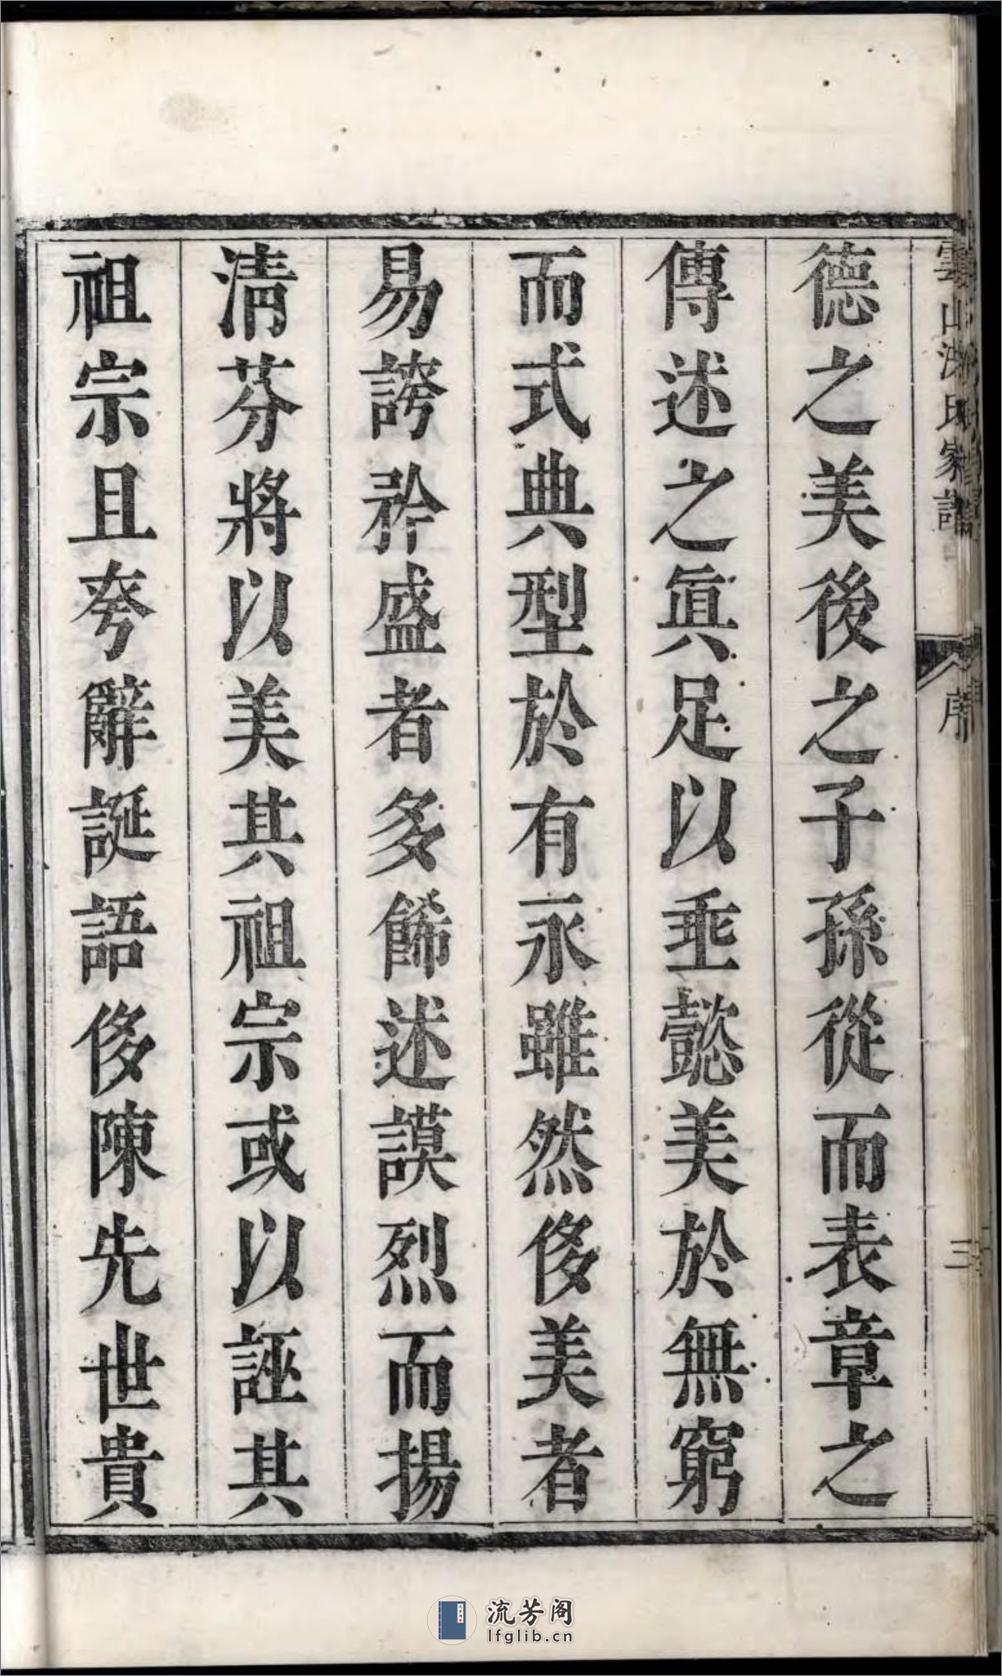 德之美後之子孫從而表章之
傳述之眞足以垂懿美於無窮
而式典型於有永雖然侈美者
易誇矜盛者多餙述謨烈而揚
清芬將以美其祖宗或以誣其
祖宗且夸辭誕語侈陳先世貴
氏家譜
序
三
流芳阁
lfglib.cn